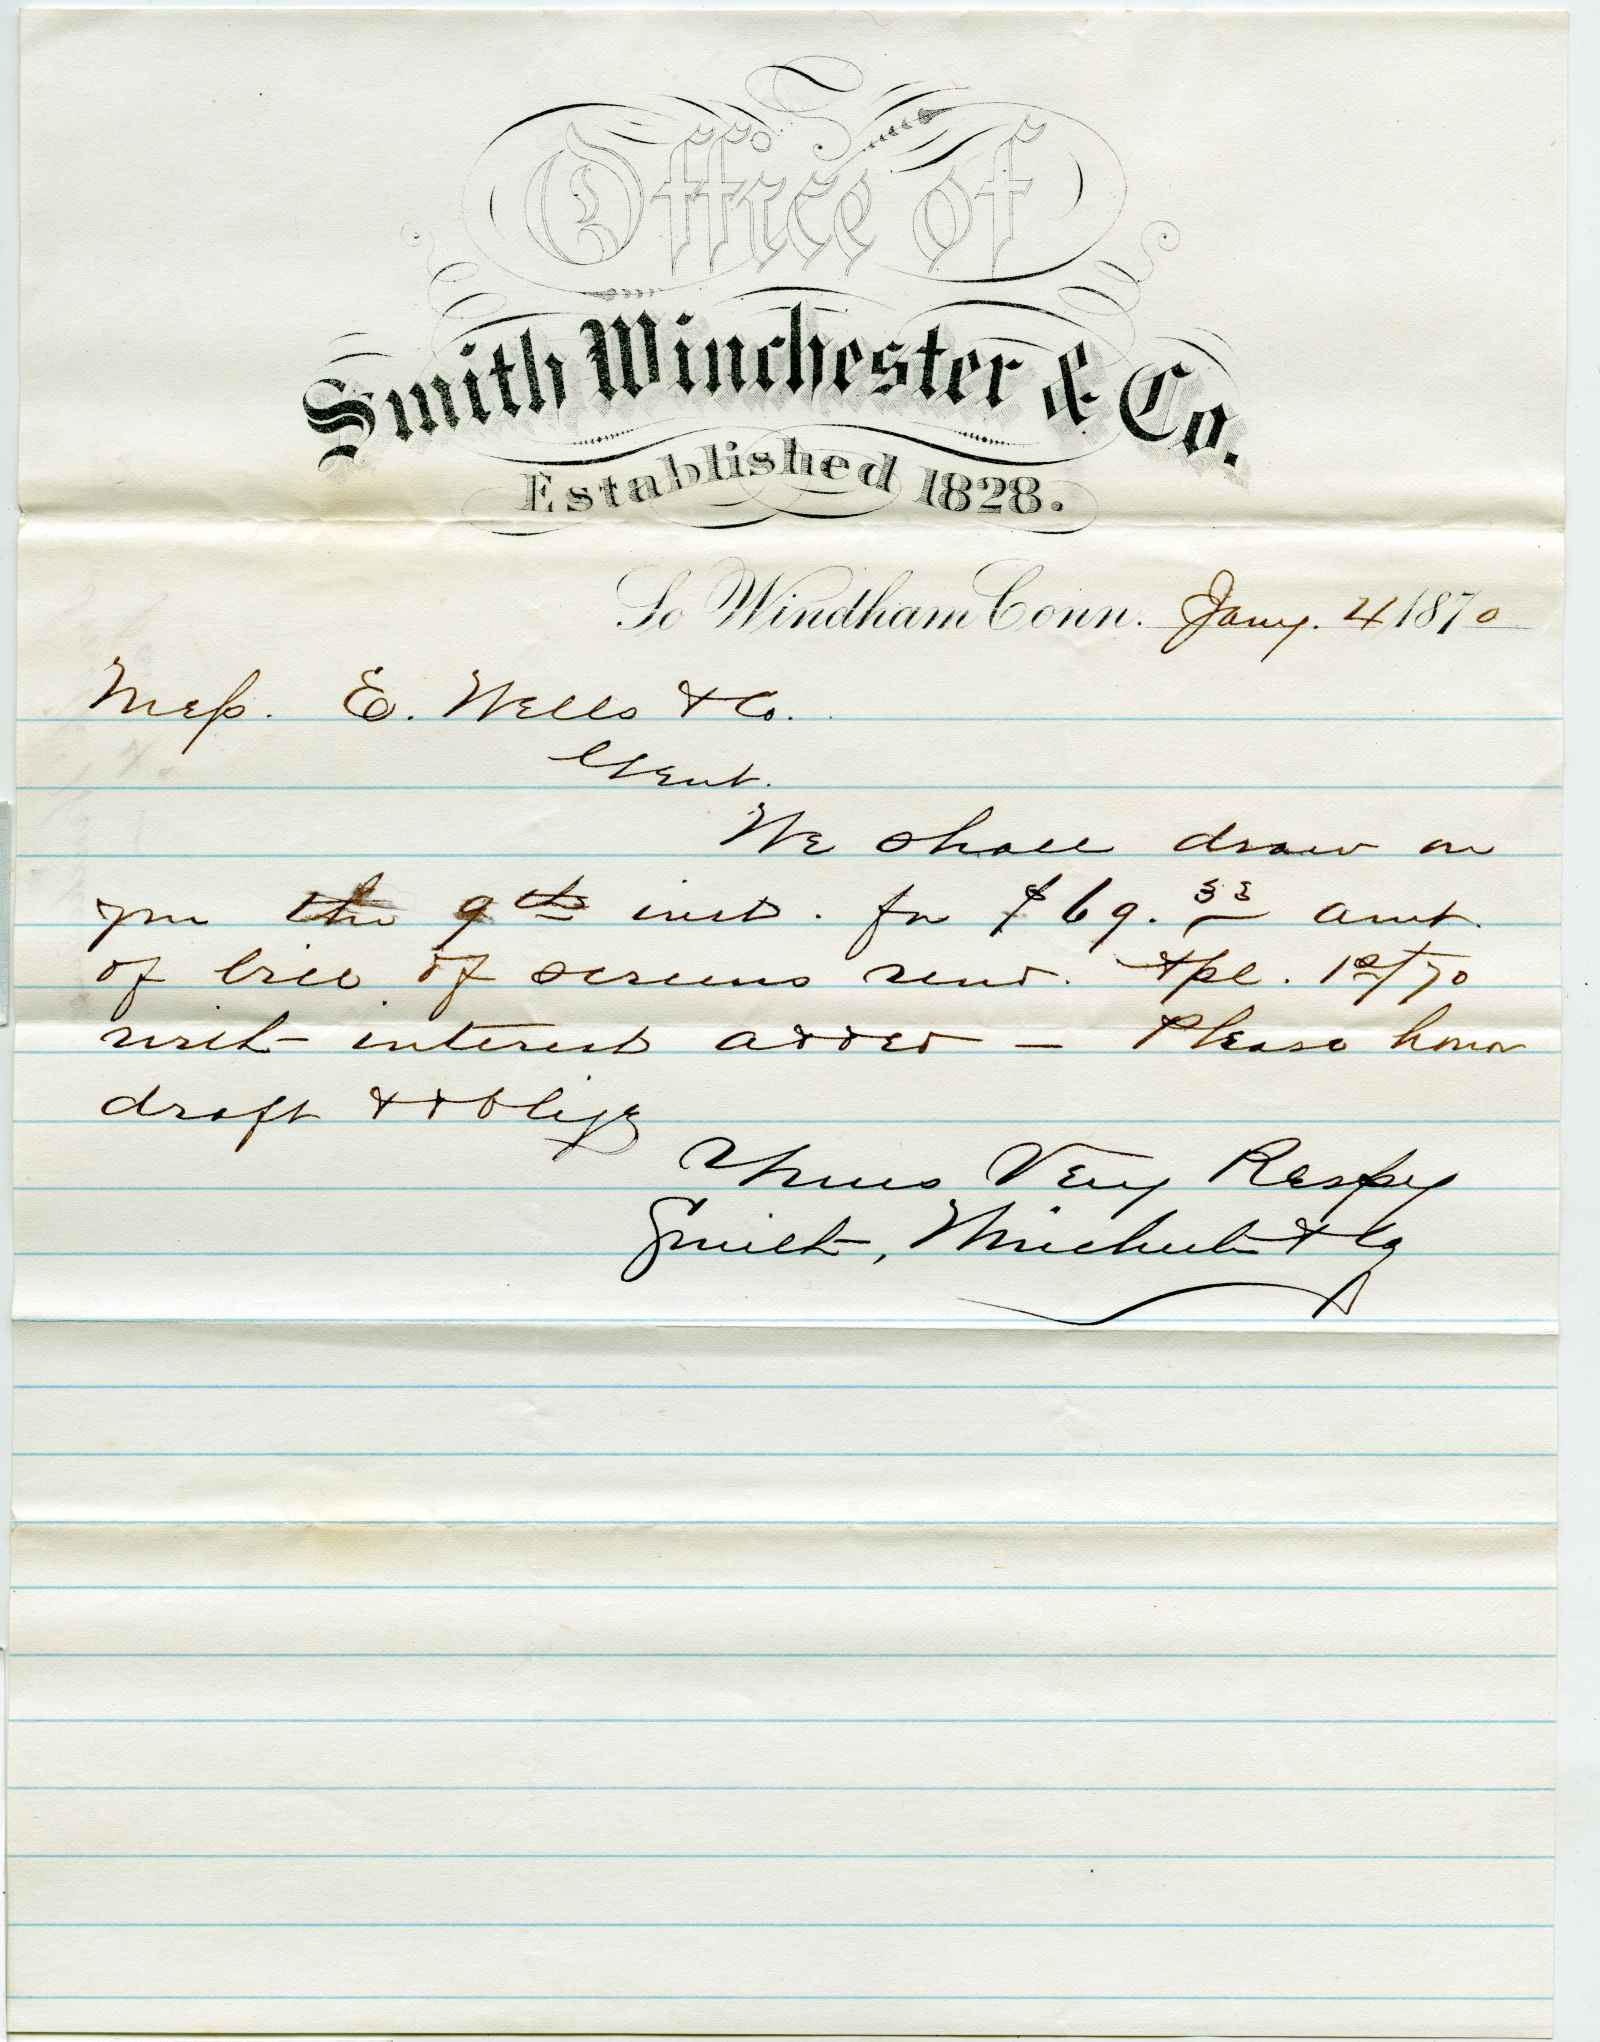 Office of
Smith Winchester & Co.
Established 1828.
So Windham Conn. Jany. 4 1870
Mess. E. Wells & Co.
Gent.
We shall draw on
you the 9th inst. for $69.33 amt.
of bill of screens rend. Apl. 1st/70
with interest added - Please honor
draft & oblige
Yours Very Respy
Smith, Winchester & Co